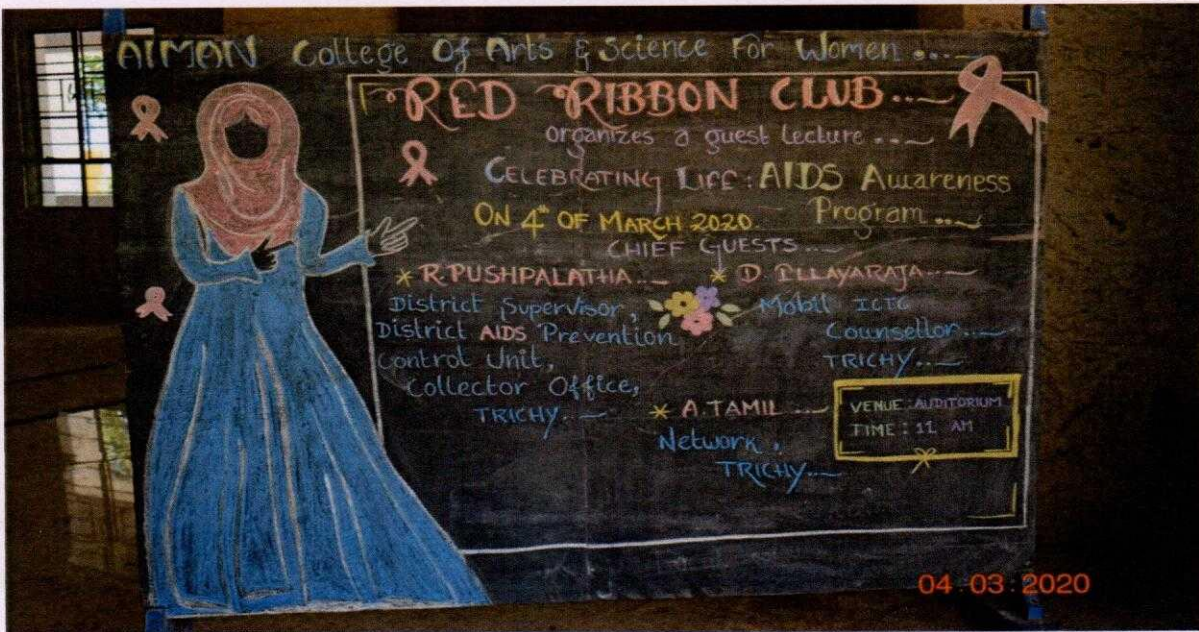 AIMAN College Of Arts & Science For Women ....
RED RIBBON CLUB....
organizes a guest lecture ....
CELEBRATING LIFE : AIDS Awareness
Program ....
ON 4th OF MARCH 2020.
CHIEF GUESTS ....
* R.PUSHPALATHA....
District Supervisor,
District AIDS Prevention
Control Unit,
Collector Office,
TRICHY....
* D. ILLAYARAJA....
Mobil ICTC
Counsellor....
TRICHY....
* A.TAMIL ....
Network,
TRICHY....
VENUE : AUDITORIUM
TIME : 11. AM
04 03 2020